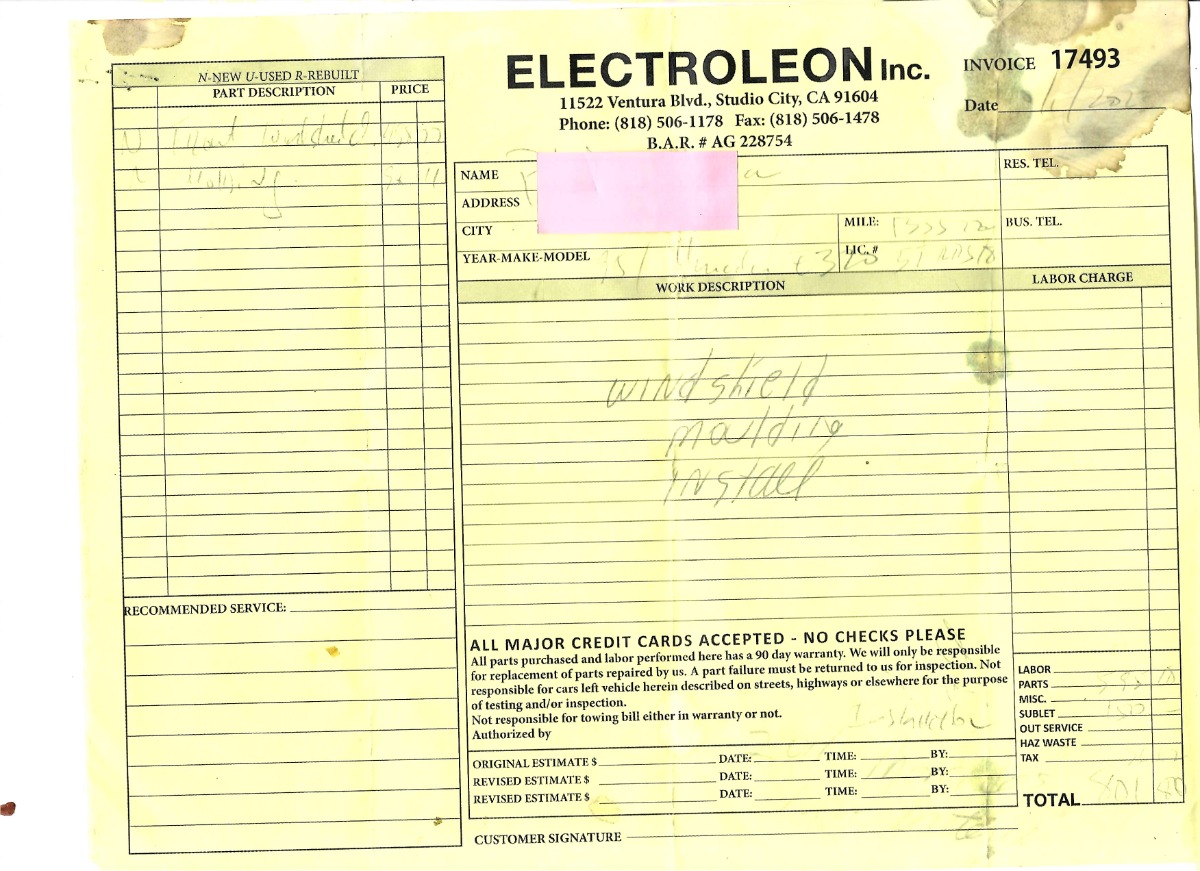 ELECTROLEON Inc.
11522 Ventura Blvd., Studio City, CA 91604
Phone: (818) 506-1178 Fax: (818) 506-1478
B.A.R. # AG 228754
INVOICE 17493
Date
N-NEW U-USED R-REBUILT
PART DESCRIPTION PRICE
N Front Windshield
NAME
ADDRESS
CITY
YEAR-MAKE-MODEL
MILE:
LIC. #
RES. TEL.
BUS. TEL.
WORK DESCRIPTION
LABOR CHARGE
windshield
moulding
install
RECOMMENDED SERVICE:
ALL MAJOR CREDIT CARDS ACCEPTED - NO CHECKS PLEASE
All parts purchased and labor performed here has a 90 day warranty. We will only be responsible
for replacement of parts repaired by us. A part failure must be returned to us for inspection. Not
responsible for cars left vehicle herein described on streets, highways or elsewhere for the purpose
of testing and/or inspection.
Not responsible for towing bill either in warranty or not.
Authorized by
ORIGINAL ESTIMATE $ DATE: TIME: BY:
REVISED ESTIMATE $ DATE: TIME: BY:
REVISED ESTIMATE $ DATE: TIME: BY:
CUSTOMER SIGNATURE
LABOR
PARTS
MISC.
SUBLET
OUT SERVICE
HAZ WASTE
TAX
TOTAL